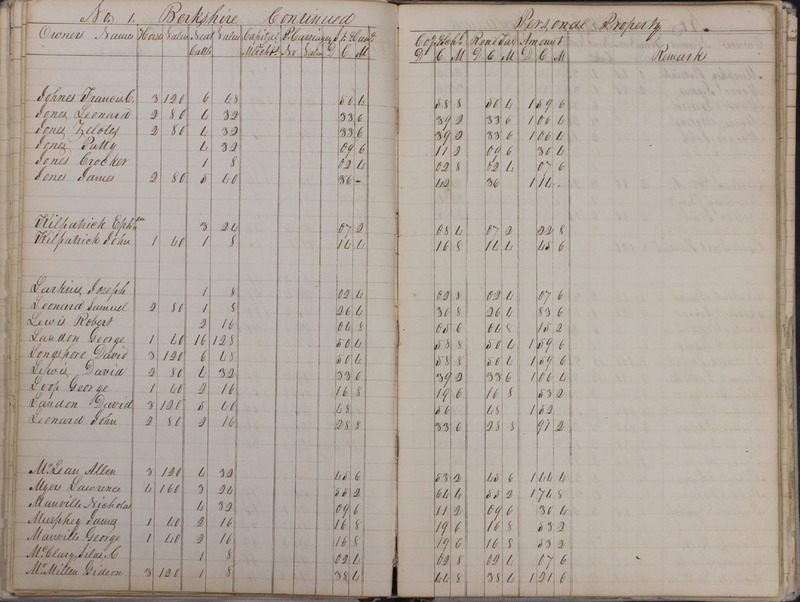 No 1. Berkshire Continued Personal Property
Owners Names Horses Value Neat Cattle Value Capital Mercht P. Carriages No Value St & Cant D C M Co & Schl D C M Road Tax D C M Amount D C M Remark
Johnes Francis C. 3 120 6 48 50 4 58 8 50 4 1 59 6
Jones Leonard 2 80 4 32 33 6 39 2 33 6 1 06 4
Jones Zelotes 2 80 4 32 33 6 39 2 33 6 1 06 4
Jones Patty 4 32 09 6 11 2 09 6 30 4
Jones Crocker 1 8 02 4 02 8 02 4 07 6
Jones James 2 80 5 40 36 – 42 36 1 14 –
Kilpatrick Ephm 3 24 07 2 08 4 07 2 22 8
Kilpatrick John 1 40 1 8 14 4 16 8 14 4 45 6
Larkins Joseph 1 8 02 4 02 8 02 4 07 6
Leonard Samuel 2 80 1 8 26 4 30 8 26 4 83 6
Lewis Robert 2 16 04 8 05 6 04 8 15 2
Landon George 1 40 16 128 50 4 58 8 50 4 1 59 6
Longshore David 3 120 6 48 50 4 58 8 50 4 1 59 6
Lewis David 2 80 4 32 33 6 39 2 33 6 1 06 4
Loop George 1 40 2 16 16 8 19 6 16 8 53 2
Landon David 3 120 5 40 48 56 48 1 52
Leonard John 2 80 2 16 28 8 33 6 28 8 91 2
McLean Allen 3 120 4 32 45 6 53 2 45 6 1 44 4
Myers Lawrence 4 160 3 24 55 2 64 4 55 2 1 74 8
Manville Nicholas 4 32 09 6 11 2 09 6 30 4
Murphey James 1 40 2 16 16 8 19 6 16 8 53 2
Manville George 1 40 2 16 16 8 19 6 16 8 53 2
McClary Silas C 1 8 02 4 02 8 02 4 07 6
McMillen Gideon 3 120 1 8 38 4 44 8 38 4 1 21 6